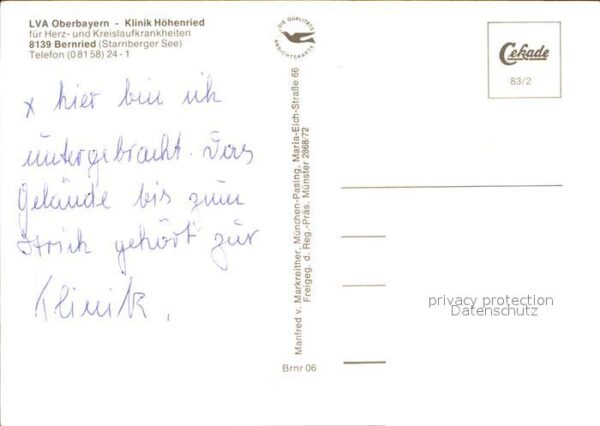 LVA Oberbayern - Klinik Höhenried
für Herz- und Kreislaufkrankheiten
8139 Bernried (Starnberger See)
Telefon (0 81 58) 24 - 1
x hier bin ich
untergebracht. Das
Gelände bis zum
Strich gehört zur
Klinik.
DIE QUALITÄTS
ANSICHTSKARTE
Manfred v. Markreither, München-Pasing, Maria-Eich-Straße 66
Freigeg. d. Reg.-Präs. Münster 2868/72
Brnr 06
Cekade
83/2
privacy protection
Datenschutz